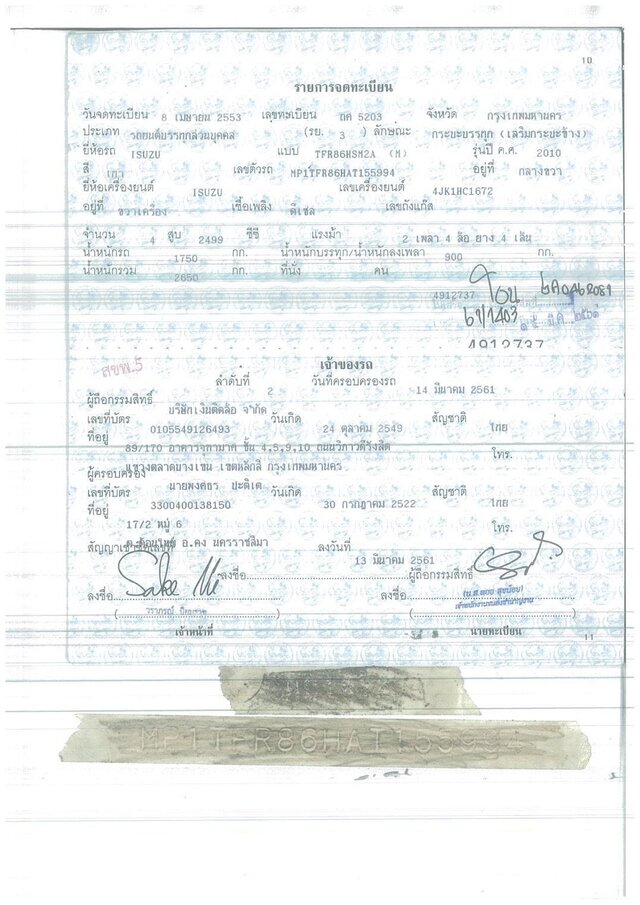 10
รายการจดทะเบียน
วันจดทะเบียน 8 เมษายน 2553 เลขทะเบียน ถศ 5203 จังหวัด กรุงเทพมหานคร
ประเภท รถยนต์บรรทุกส่วนบุคคล (รย. 3 ) ลักษณะ กระบะบรรทุก (เสริมกระบะข้าง)
ยี่ห้อรถ ISUZU แบบ TFR86HSM2A (M) รุ่นปี ค.ศ. 2010
สี เทา เลขตัวรถ MP1TFR86HAT155994 อยู่ที่ กลางขวา
ยี่ห้อเครื่องยนต์ ISUZU เลขเครื่องยนต์ 4JK1HC1672
อยู่ที่ ขวาเครื่อง เชื้อเพลิง ดีเซล เลขถังแก๊ส
จำนวน 4 สูบ 2499 ซีซี แรงม้า 2 เพลา 4 ล้อ ยาง 4 เส้น
น้ำหนักรถ 1750 กก. น้ำหนักบรรทุก/น้ำหนักลงเพลา 900 กก.
น้ำหนักรวม 2650 กก. ที่นั่ง คน
4912737 โอน
61/1403
๑๕ มี.ค. ๒๕๖๑
4912737
สขพ.5
เจ้าของรถ
ลำดับที่ 2 วันที่ครอบครองรถ 14 มีนาคม 2561
ผู้ถือกรรมสิทธิ์ บริษัท เงินติดล้อ จำกัด
เลขที่บัตร 0105549126493 วันเกิด 24 ตุลาคม 2549 สัญชาติ ไทย
ที่อยู่ 89/170 อาคารจุฑามาศ ชั้น 4,5,9,10 ถนนวิภาวดีรังสิต
แขวงตลาดบางเขน เขตหลักสี่ กรุงเทพมหานคร โทร.
ผู้ครอบครอง นายพงศธร ปะติเต
เลขที่บัตร 3300400138150 วันเกิด 30 กรกฎาคม 2522 สัญชาติ ไทย
ที่อยู่ 17/2 หมู่ 6
อ.คง นครราชสีมา โทร.
สัญญาเช่าซื้อเลขที่ ลงวันที่ 13 มีนาคม 2561
ลงชื่อ ผู้ถือกรรมสิทธิ์
ลงชื่อ ลงชื่อ
เจ้าหน้าที่ นายทะเบียน
11
MP1TFR86HAT155994